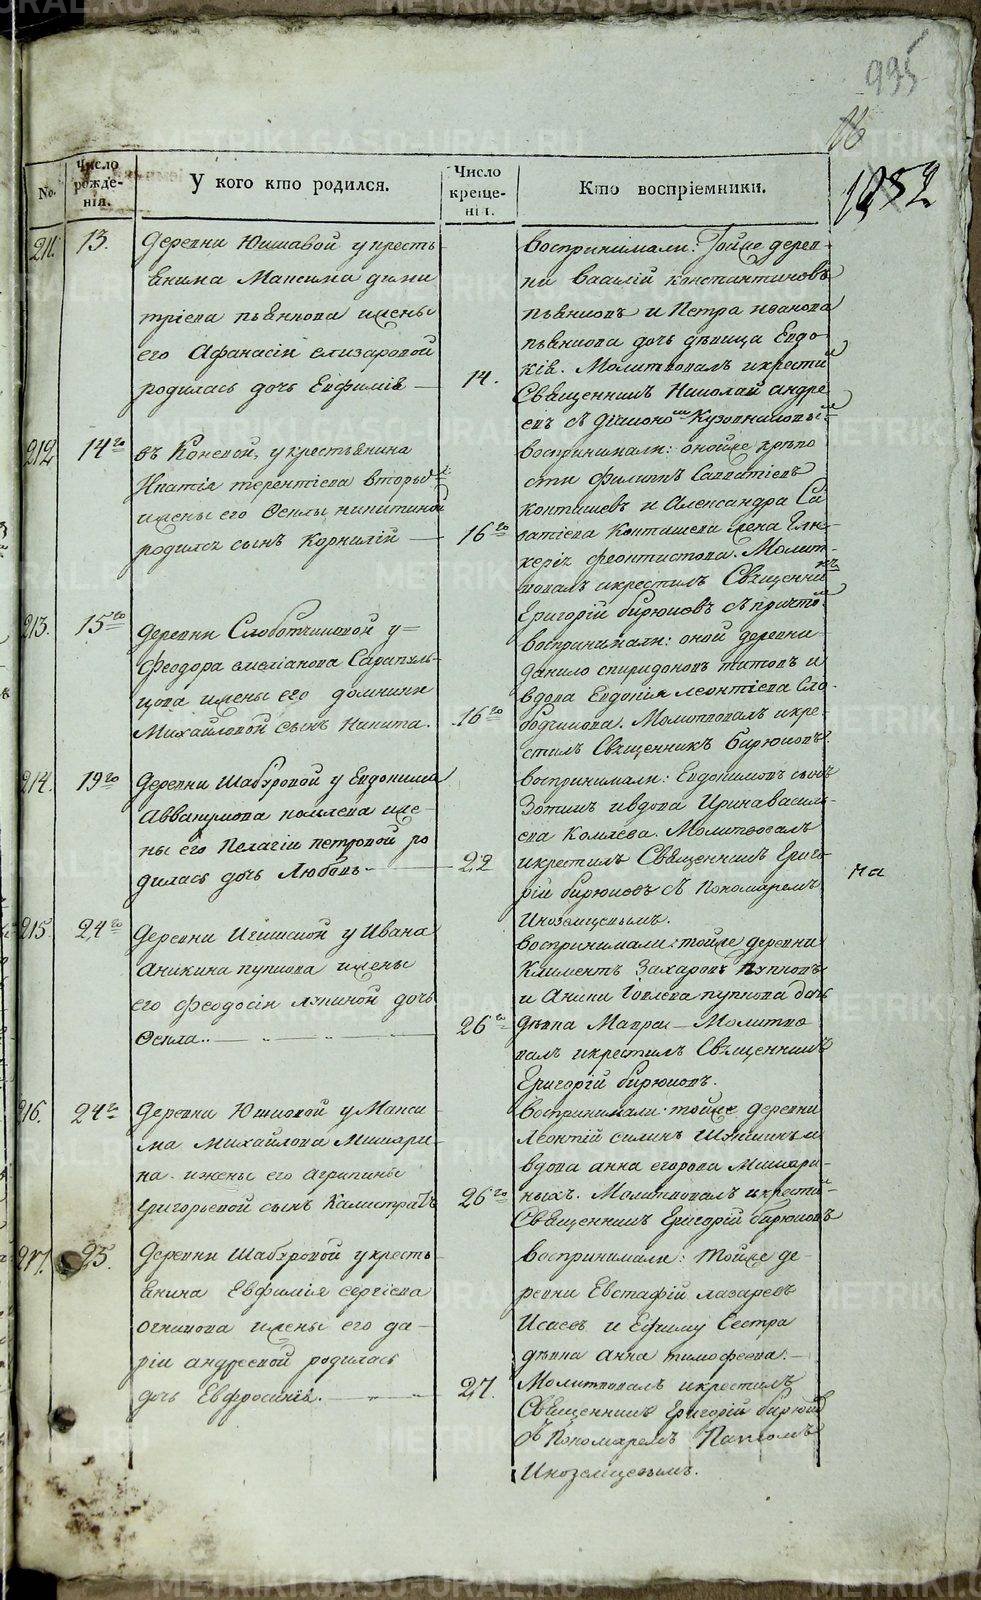 995
16
1052
No.
Число рожде-нія.
У кого кто родился.
Число креще-нія.
Кто воспріемники.
211. 13.
деревни Юшиовой у кресть
янина Максима дими
тріева пьянкова ижены
его Афанасіи елизаровой
родилась дочь Евфимія
14.
воспринимали: Тойже дерев
ни Василій константиновъ
пьянковъ и Петра иванова
пьянкова дочь дѣвица Евдо
кія. Молитвовалъ икрестил
Священникъ Николай андре
евъ съ Кузовниковы
212 14го
въ Коневой, у крестьянина
Ипатія терентіева второв
ижены его Феклы никитиной
родился сынъ Корнилій
16го
воспринимали: онойже крѣпо
сти филиппъ Савватіевъ
контышевъ и Александра Са
ватіева Конташева жена Гли
керія феоктистова. Молит-
вовалъ икрестилъ Священни
къ
Григорій бирюковъ съ причто
213. 15го
деревни Слободчиковой у=
Феодора емеліанова Сарапуль-
цова ижены его домники
Михайловой сынъ Никита.
16го
воспринимали: оной деревни
данило спиридоновъ титовъ и
вдова Евдокія леонтіева сло
бодчикова. Молитвовалъ икре-
стилъ Священникъ Бирюковъ.
214. 19го
деревни Шабуровой у Евдокима
Аввакумова комлева иже-
ны его Пелагіи петровой ро
дилась дочь Любовь
22
воспринимали: Евдокимовъ сынъ
Зотикъ ивдова Ирина василь-
ева Комлева. Молитвовалъ
икрестилъ Священникъ Григо-
рій бирюковъ съ Пономаремъ
Иноземцевымъ.
на
215. 24го
деревни у Ивана
Аникина пупкова ижены
его феодосіи лукиной дочь
Фекла..
26го
воспринимали: тойже деревни
Климентъ Захаровъ пупковъ
и Акики Іовлева пупкова дочь
дѣвка Мавра — Молитво
валъ икрестилъ Священникъ
Григорій бирюковъ.
216. 24го
деревни Юшковой у Макси
ма Михайлова Мишари
на ижены его агрипины
григорьевой сынъ Калистратъ
26го
воспринимали: тойже деревни
Леонтій силинъ и
вдова анна егорова Мишари-
ныхъ. Молитвовалъ икрестил
Священникъ Григорій бирюковъ
217. 25.
деревни Шабуровой укресть
янина Евфимія сергіева
огникова ижены его да-
ріи андреевой родилась
дочь Евфросинія.
27.
воспринимали: Тойже де-
ревни Евстафій лазаревъ
Исаевъ и Ефиму Сестра
дѣвка анна тимофеева.
Молитвовалъ икрестилъ
Священникъ Григорій бирюков
съ Пономаремъ Павломъ
Иноземцевымъ.
METRIKI.GASO-URAL.RU